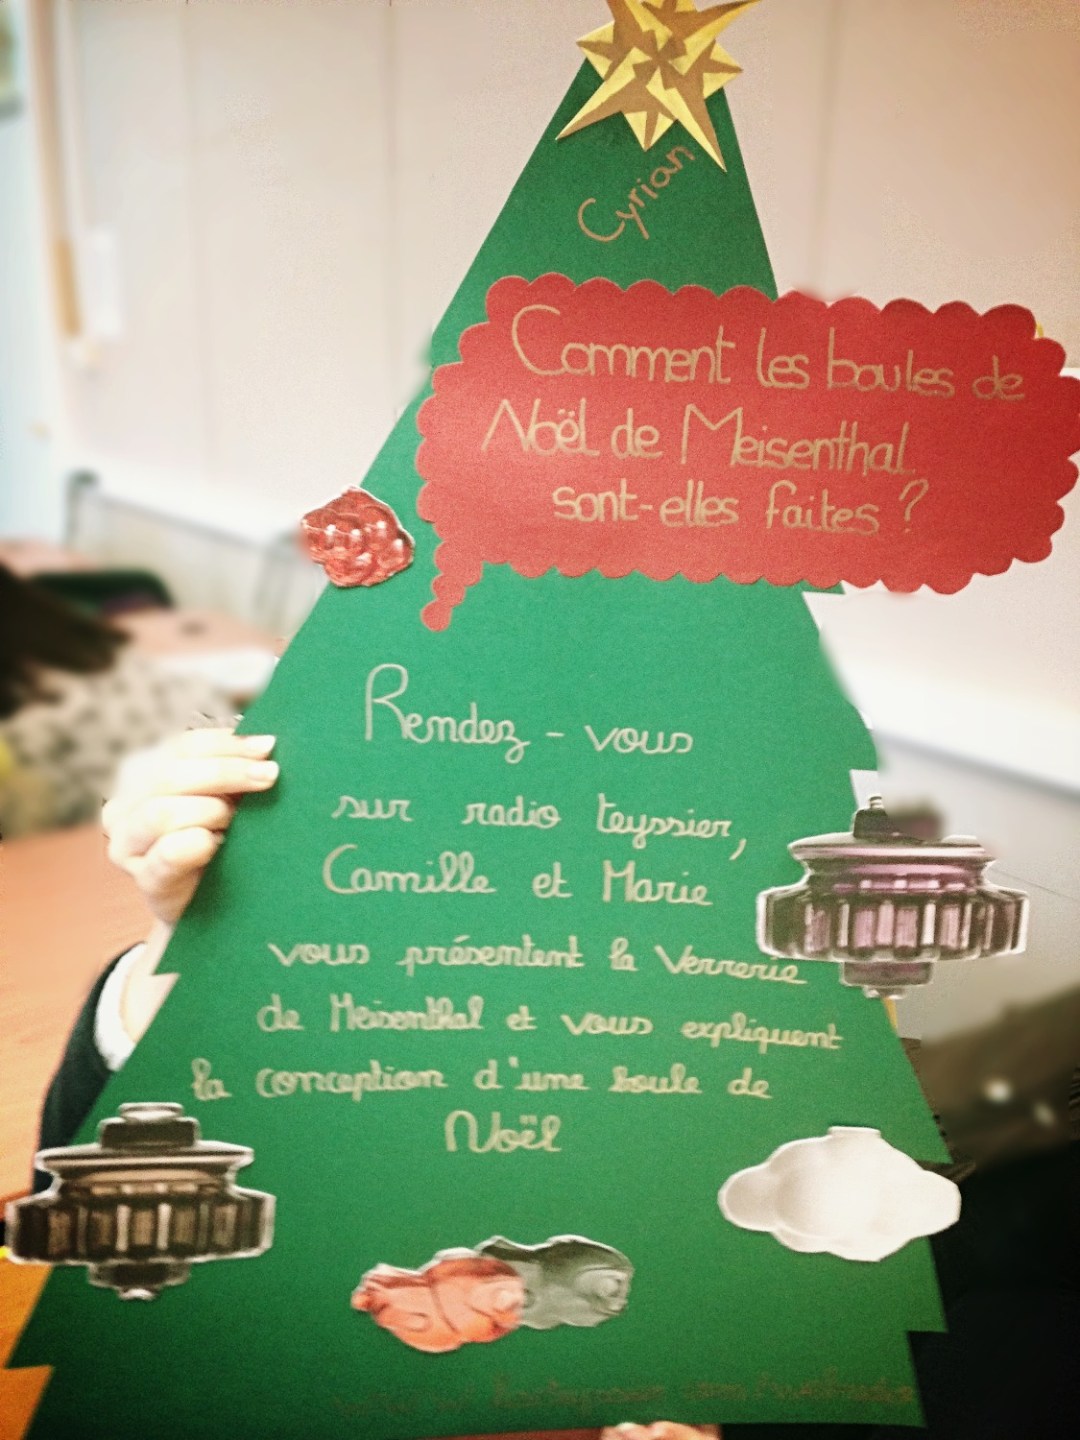 Cyrian
Comment les boules de
Noël de Meisenthal
sont-elles faites ?
Rendez-vous
sur radio teyssier,
Camille et Marie
vous présentent la Verrerie
de Meisenthal et vous expliquent
la conception d'une boule de
Noël